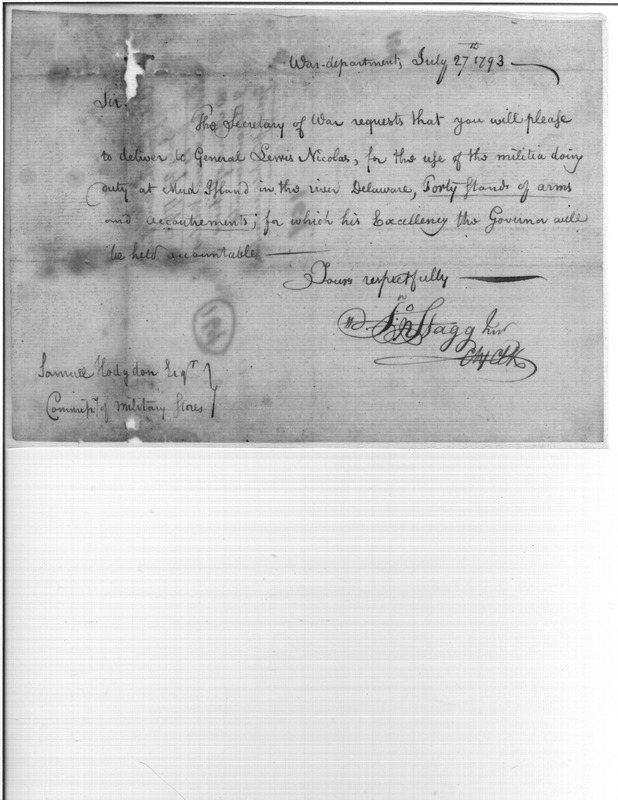 War-department, July 27th 1793
Sir.
The Secretary of War requests that you will please
to deliver to General Lewis Nicolas, for the use of the militia doing
duty at Mud Island in the river Delaware, Forty Stands of arms
and accoutrements; for which his Excellency the Governor will
be held accountable
Yours respectfully
Jno Stagg Junr
Chf Clk
Samuel Hodgdon Esqr
Commissy of Military Stores